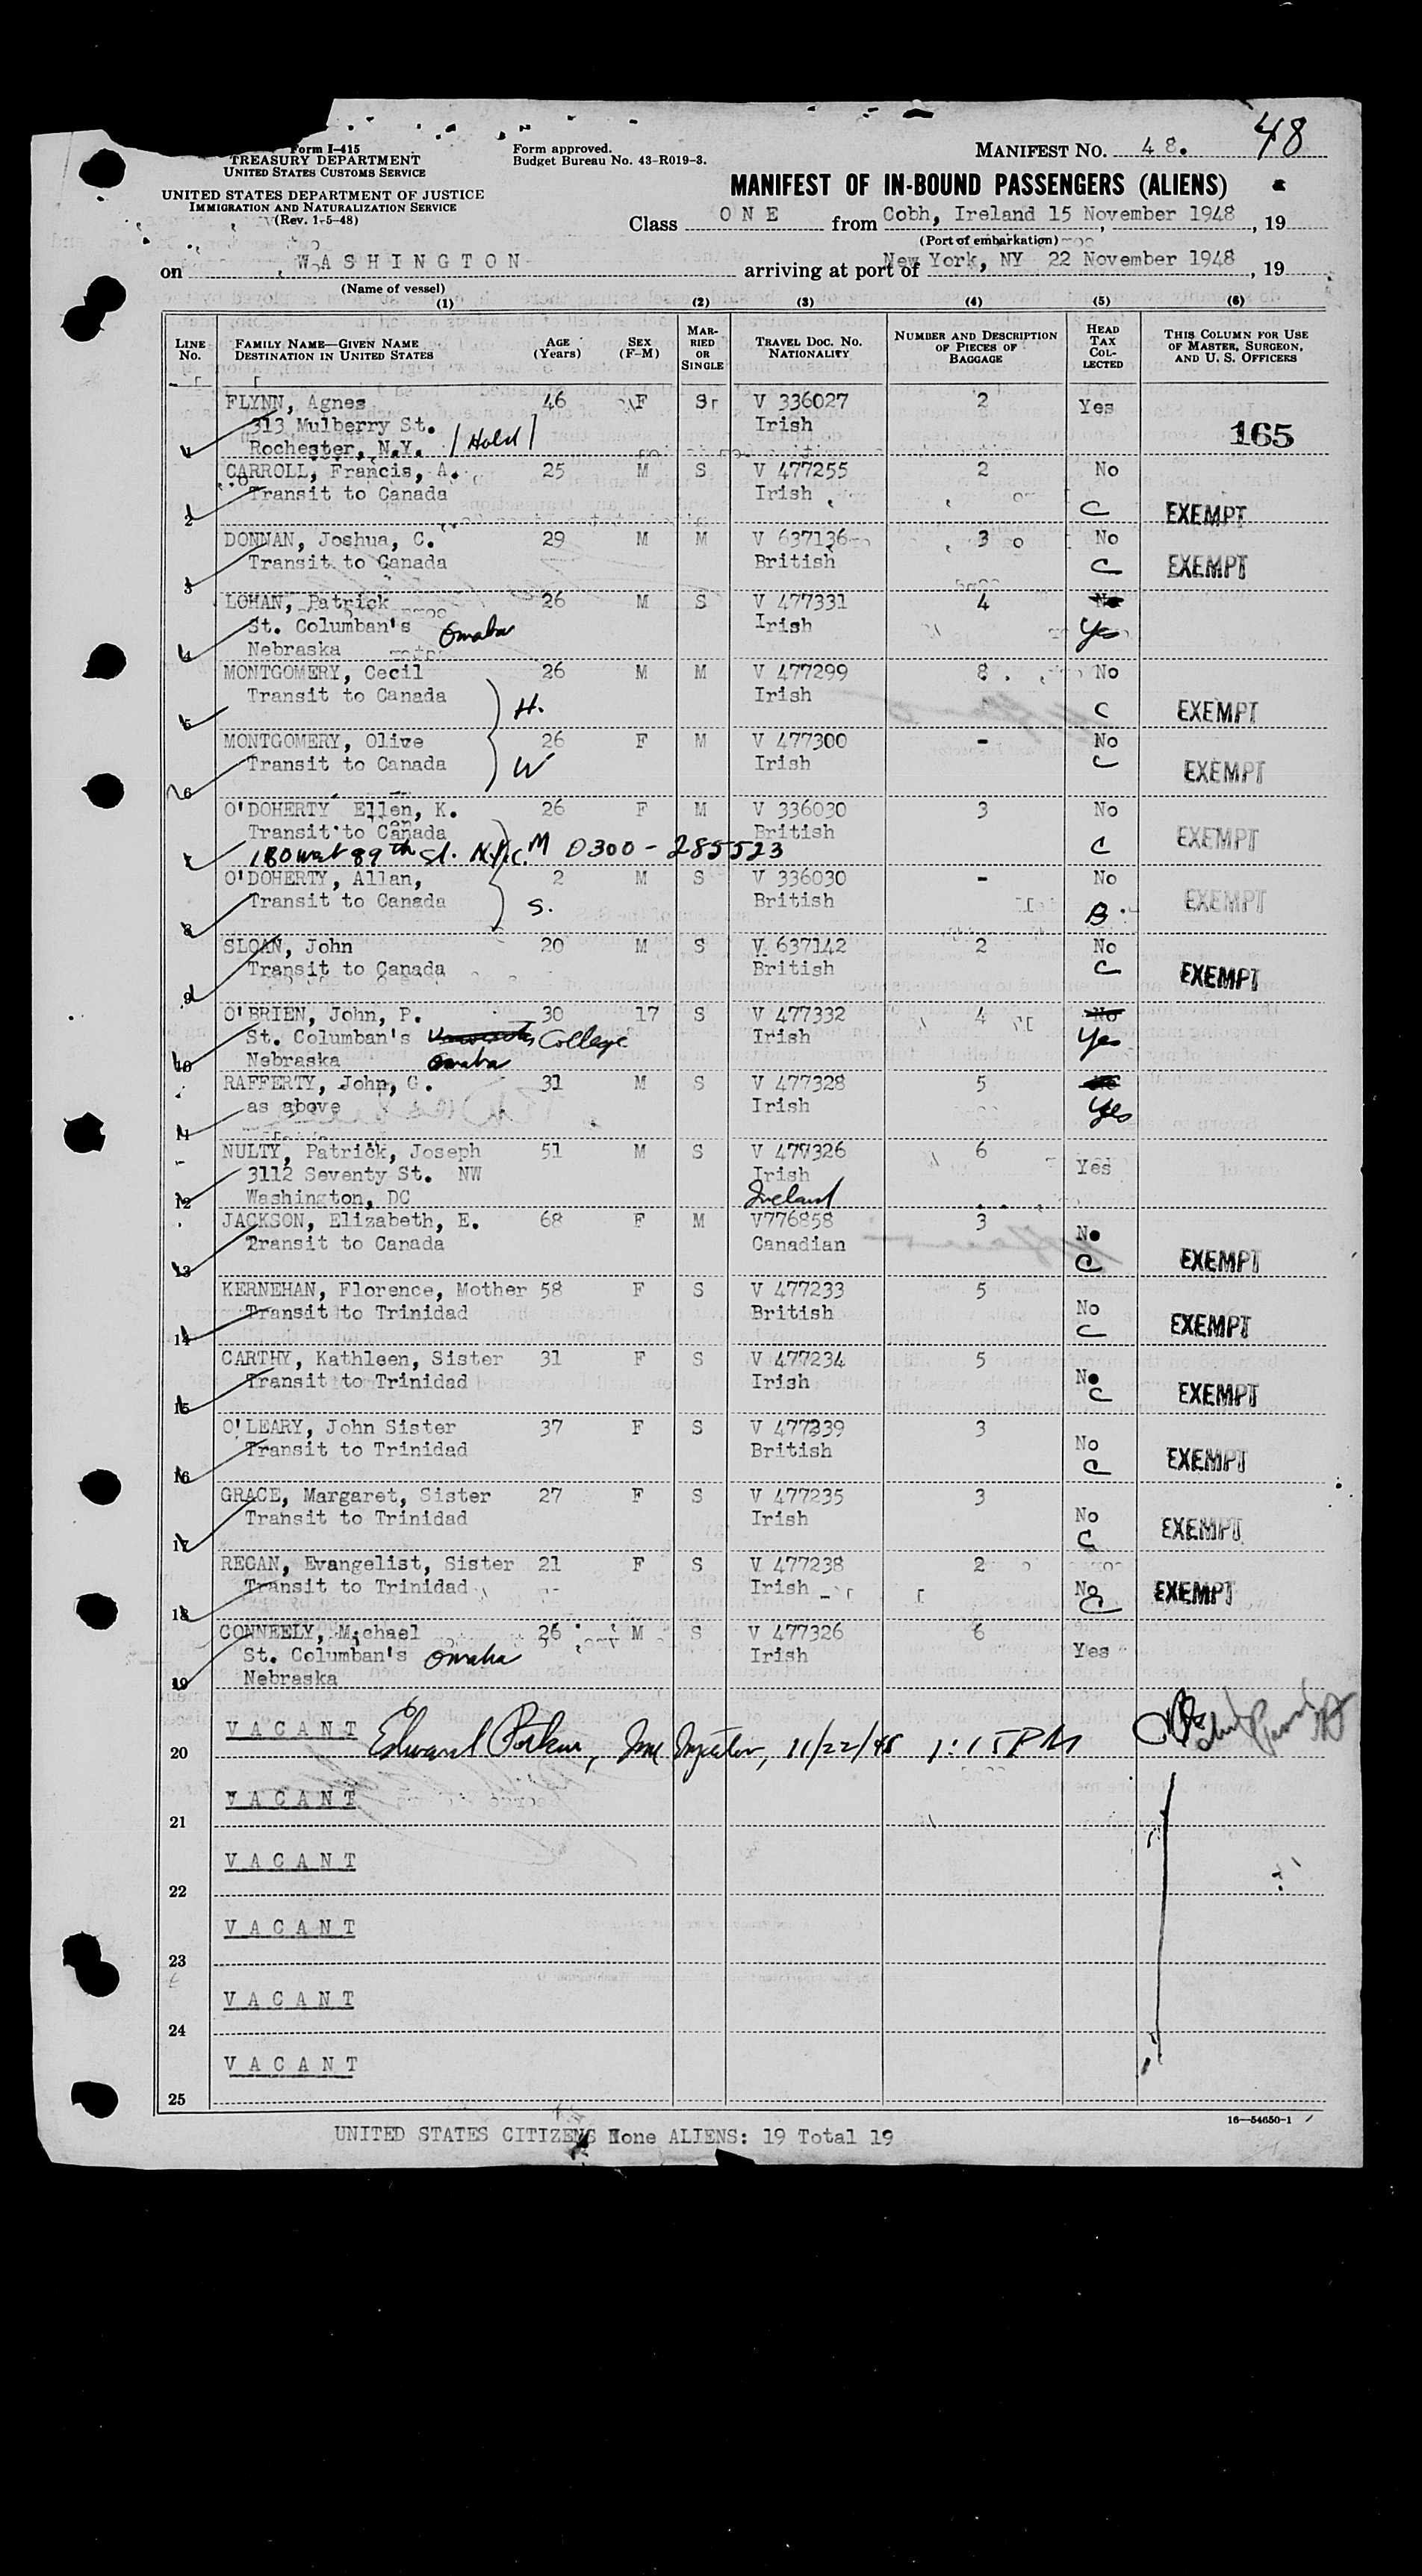 48
Form I-415
TREASURY DEPARTMENT
UNITED STATES CUSTOMS SERVICE
Form approved.
Budget Bureau No. 43-R019-3.
MANIFEST NO. 48.
UNITED STATES DEPARTMENT OF JUSTICE
IMMIGRATION AND NATURALIZATION SERVICE
(Rev. 1-5-48)
MANIFEST OF IN-BOUND PASSENGERS (ALIENS)
Class ONE from Cobh, Ireland 15 November 1948, 19
(Port of embarkation)
on WASHINGTON arriving at port of New York, NY 22 November 1948, 19
(Name of vessel)
(1) (2) (3) (4) (5) (6)
LINE No. FAMILY NAME—GIVEN NAME DESTINATION IN UNITED STATES AGE (Years) SEX (F-M) MARRIED OR SINGLE TRAVEL DOC. NO. NATIONALITY NUMBER AND DESCRIPTION OF PIECES OF BAGGAGE HEAD TAX COLLECTED THIS COLUMN FOR USE OF MASTER, SURGEON, AND U. S. OFFICERS
FLYNN, Agnes 46 F S V 336027 2 Yes
313 Mulberry St. Irish 165
1 Rochester, N.Y. /Held/
CARROLL, Francis, A. 25 M S V 477255 2 No
Transit to Canada Irish
2 C EXEMPT
DONNAN, Joshua, C. 29 M M V 637136 3 No
Transit to Canada British C EXEMPT
3
LOHAN, Patrick 26 M S V 477331 4 No
St. Columban's Omaha Irish Yes
4 Nebraska
MONTGOMERY, Cecil 26 M M V 477299 8 No
Transit to Canada H. Irish
5 C EXEMPT
MONTGOMERY, Olive 26 F M V 477300 - No
Transit to Canada W Irish C EXEMPT
6
O'DOHERTY Ellen, K. 26 F M V 336030 3 No
Transit to Canada British EXEMPT
7 180 West 89th St. N.Y.C. M 0300-285523 C
O'DOHERTY, Allan, 2 M S V 336030 - No
Transit to Canada S. British EXEMPT
8 B
SLOAN, John 20 M S V 637142 2 No
Transit to Canada British C EXEMPT
9
O'BRIEN, John, P. 30 17 S V 477332 4 No
St. Columban's College Irish Yes
10 Nebraska Omaha
RAFFERTY, John, G. 31 M S V 477328 5
as above Irish Yes
11
NULTY, Patrick, Joseph 51 M S V 477326 6
3112 Seventy St. NW Irish Yes
12 Washington, DC Ireland
JACKSON, Elizabeth, E. 68 F M V776858 3
Transit to Canada Canadian No
13 C EXEMPT
KERNEHAN, Florence, Mother 58 F S V 477233 5
Transit to Trinidad British No
14 C EXEMPT
CARTHY, Kathleen, Sister 31 F S V 477234 5
Transit to Trinidad Irish No
15 C EXEMPT
O'LEARY, John Sister 37 F S V 477239 3
Transit to Trinidad British No
16 C EXEMPT
GRACE, Margaret, Sister 27 F S V 477235 3
Transit to Trinidad Irish No
17 C EXEMPT
REGAN, Evangelist, Sister 21 F S V 477238 2
Transit to Trinidad Irish No
18 C EXEMPT
CONNEELY, Michael 26 M S V 477326 6
St. Columban's Omaha Irish Yes
19 Nebraska
VACANT
20 Edward 11/22/48 1:15 PM
VACANT
21
VACANT
22
VACANT
23
VACANT
24
VACANT
25
16—54650-1
UNITED STATES CITIZENS None ALIENS: 19 Total 19